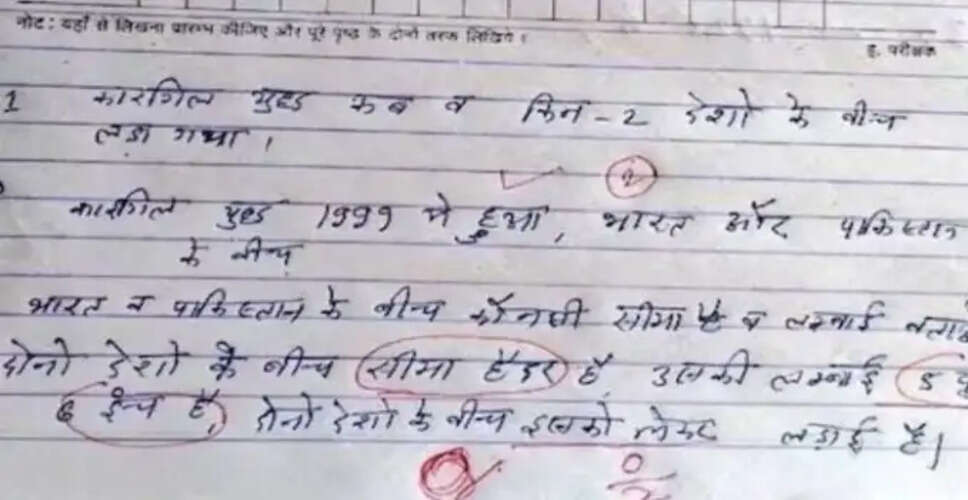 नोट : यहाँ से लिखना प्रारम्भ कीजिए और पूरे पृष्ठ के दोनों तरफ लिखिये ।
ह. परीक्षक
1 कारगिल युद्ध कब व किन-2 देशो के बीच
लडा गया ।
2
कारगिल युद्ध 1999 मे हुआ, भारत और पाकिस्तान
के बीच
भारत व पाकिस्तान के बीच कौनसी सीमा है व लम्बाई बताओ
दोनो देशो के बीच सीमा हैदर है उसकी लम्बाई 5 फु
6 इन्च है, दोनों देशो के बीच इसको लेकर लडाई है।
0/2